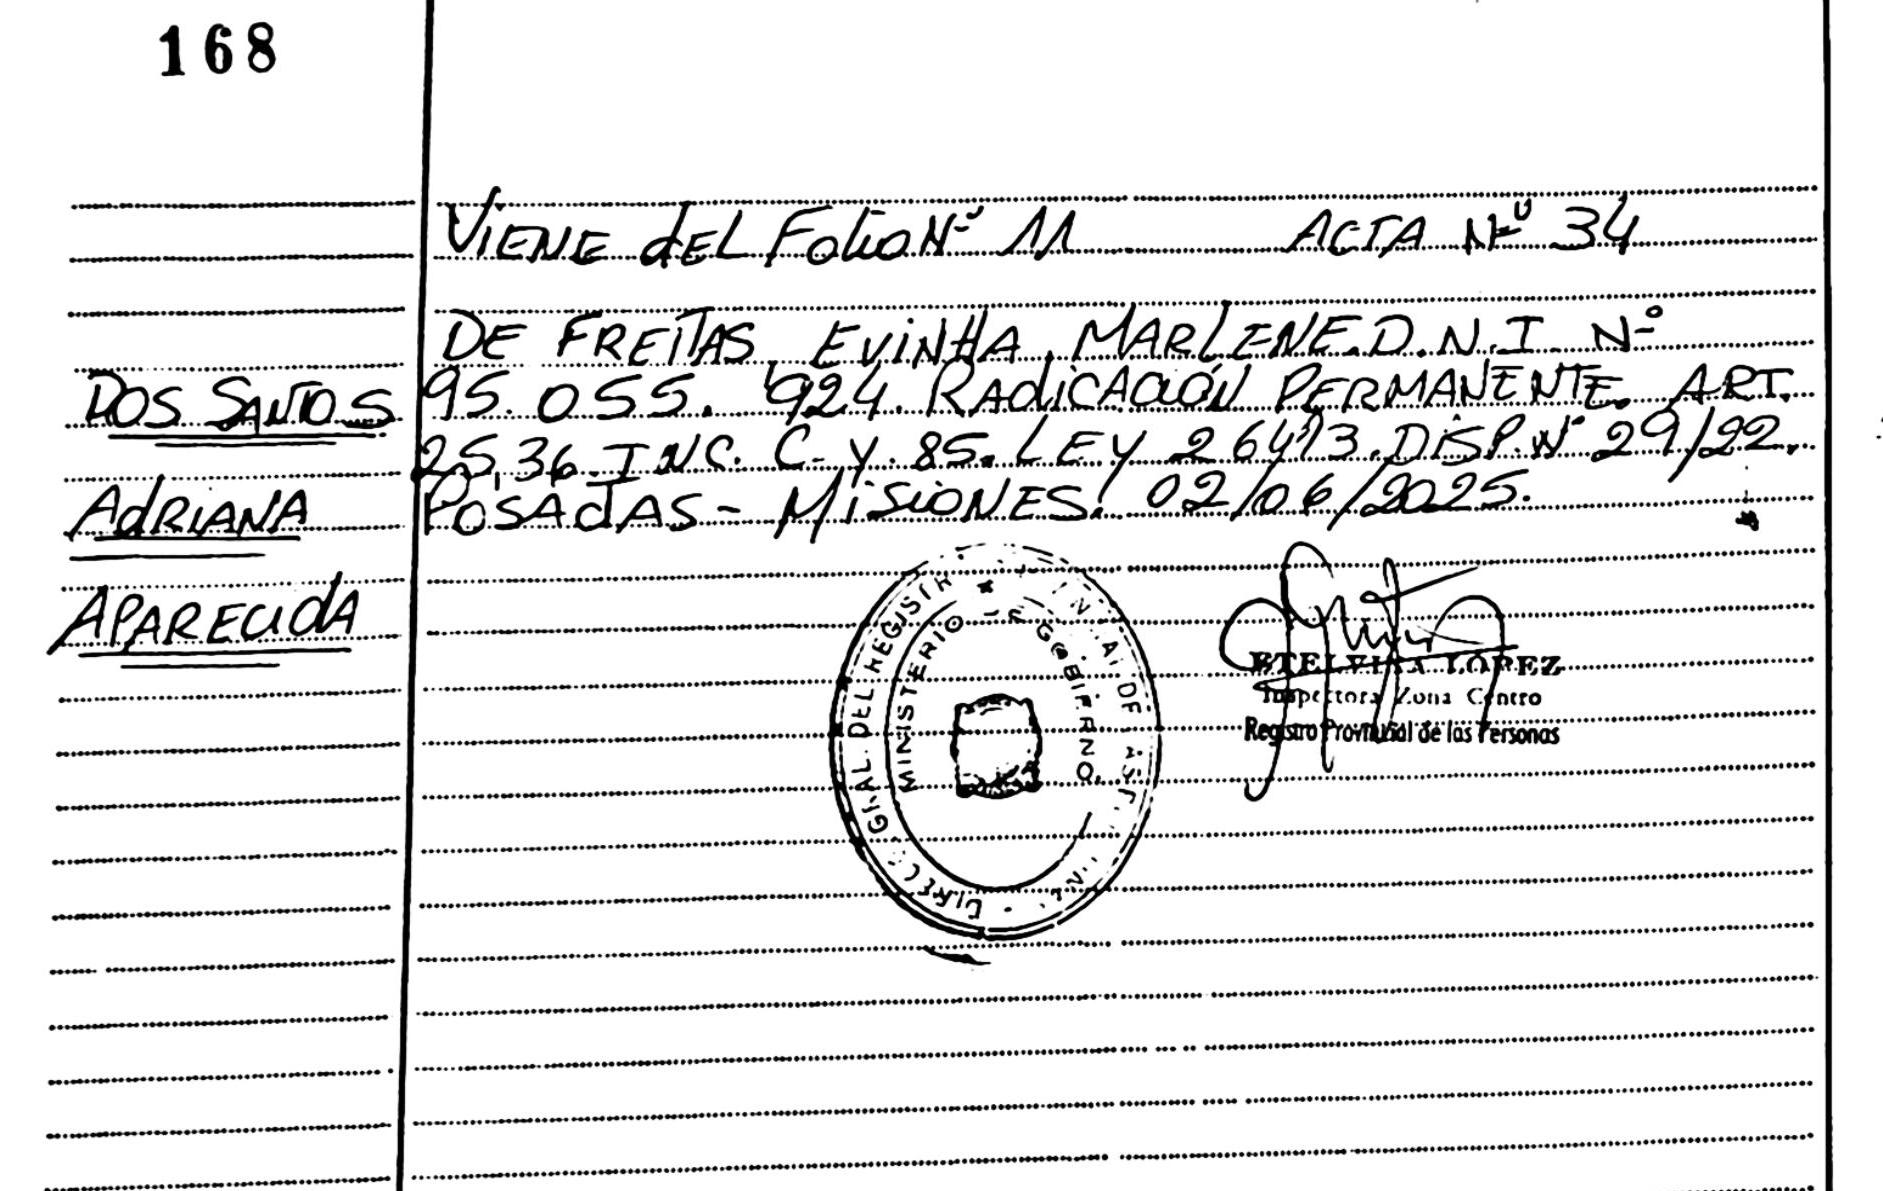 168
Viene del Folio Nº 11 Acta Nº 34
DE FREITAS, EVINHA, MARLENE. D.N.I. Nº
Dos Santos
95.055.924. Radicación PERMANENTE. ART.
25,36. INC. C. y. 85. LEY 26413. DISP. Nº 29/22.
Adriana
Posadas - Misiones. 02/06/2025.
Aparecida
MINISTERIO DE GOBIERNO
ETELVINA LOPEZ
Inspectora Zona Centro
Registro Provincial de las Personas